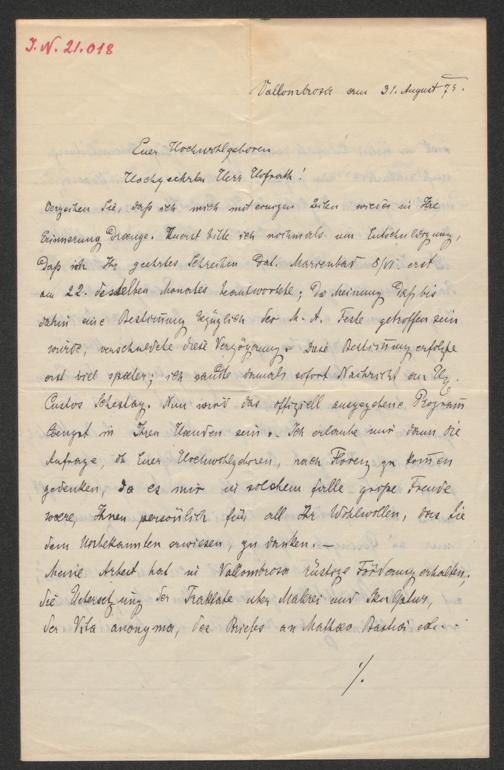 J. N. 21.018
Vallombrosa am 31. August 75.
Euer Hochwohlgeboren
Hochgeehrter Herr Hofrath!
Verzeihen Sie, daß ich mich mit einigen Zeilen wieder in Ihre
Erinnerung draenge. Zuerst bitte ich nochmals um Entschuldigung,
daß ich Ihr geehrtes Schreiben dat. Marienbad 8/VI. erst
am 22. desselben Monates beantwortete; die Meinung daß bis
dahin eine Bestimmung bezüglich der M. A. Feste getroffen sein
würde, verschuldete diese Verzögerung. Diese Bestimmung erfolgte
erst viel spaeter; ich sandte damals sofort Nachricht an Hr.
Custos Schestag. Nun wird das offiziell ausgegebene Program
laengst in Ihren Haenden sein. Ich erlaube mir dann die
Anfrage, ob Euer Hochwohlgeboren, nach Florenz zu komen
gedenken, da es mir in solchem Falle große Freude
waere, Ihnen persönlich für all Ihr Wohlwollen, das Sie
dem Unbekannten erwiesen, zu danken. —
Meine Arbeit hat in Vallombrosa rüstige Förderung erhalten,
die Uebersetzung der Traktate über Malerei und Skulptur,
der Vita anonyma, des Briefes an Matteo Bastia
./.